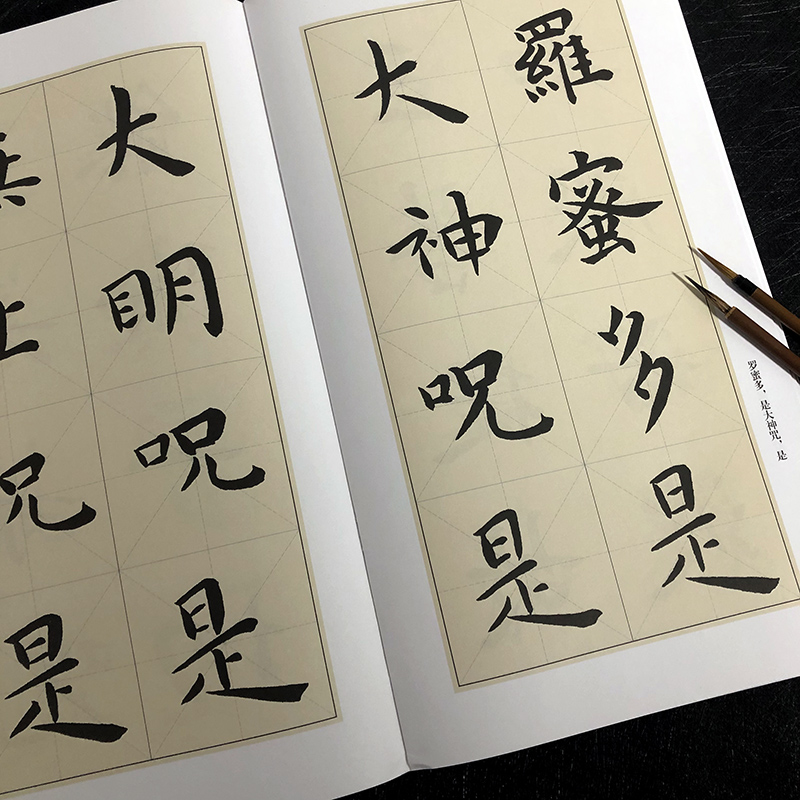 羅蜜多是
大神呪是
罗蜜多，是大神咒，是
大明呪是
上呪是